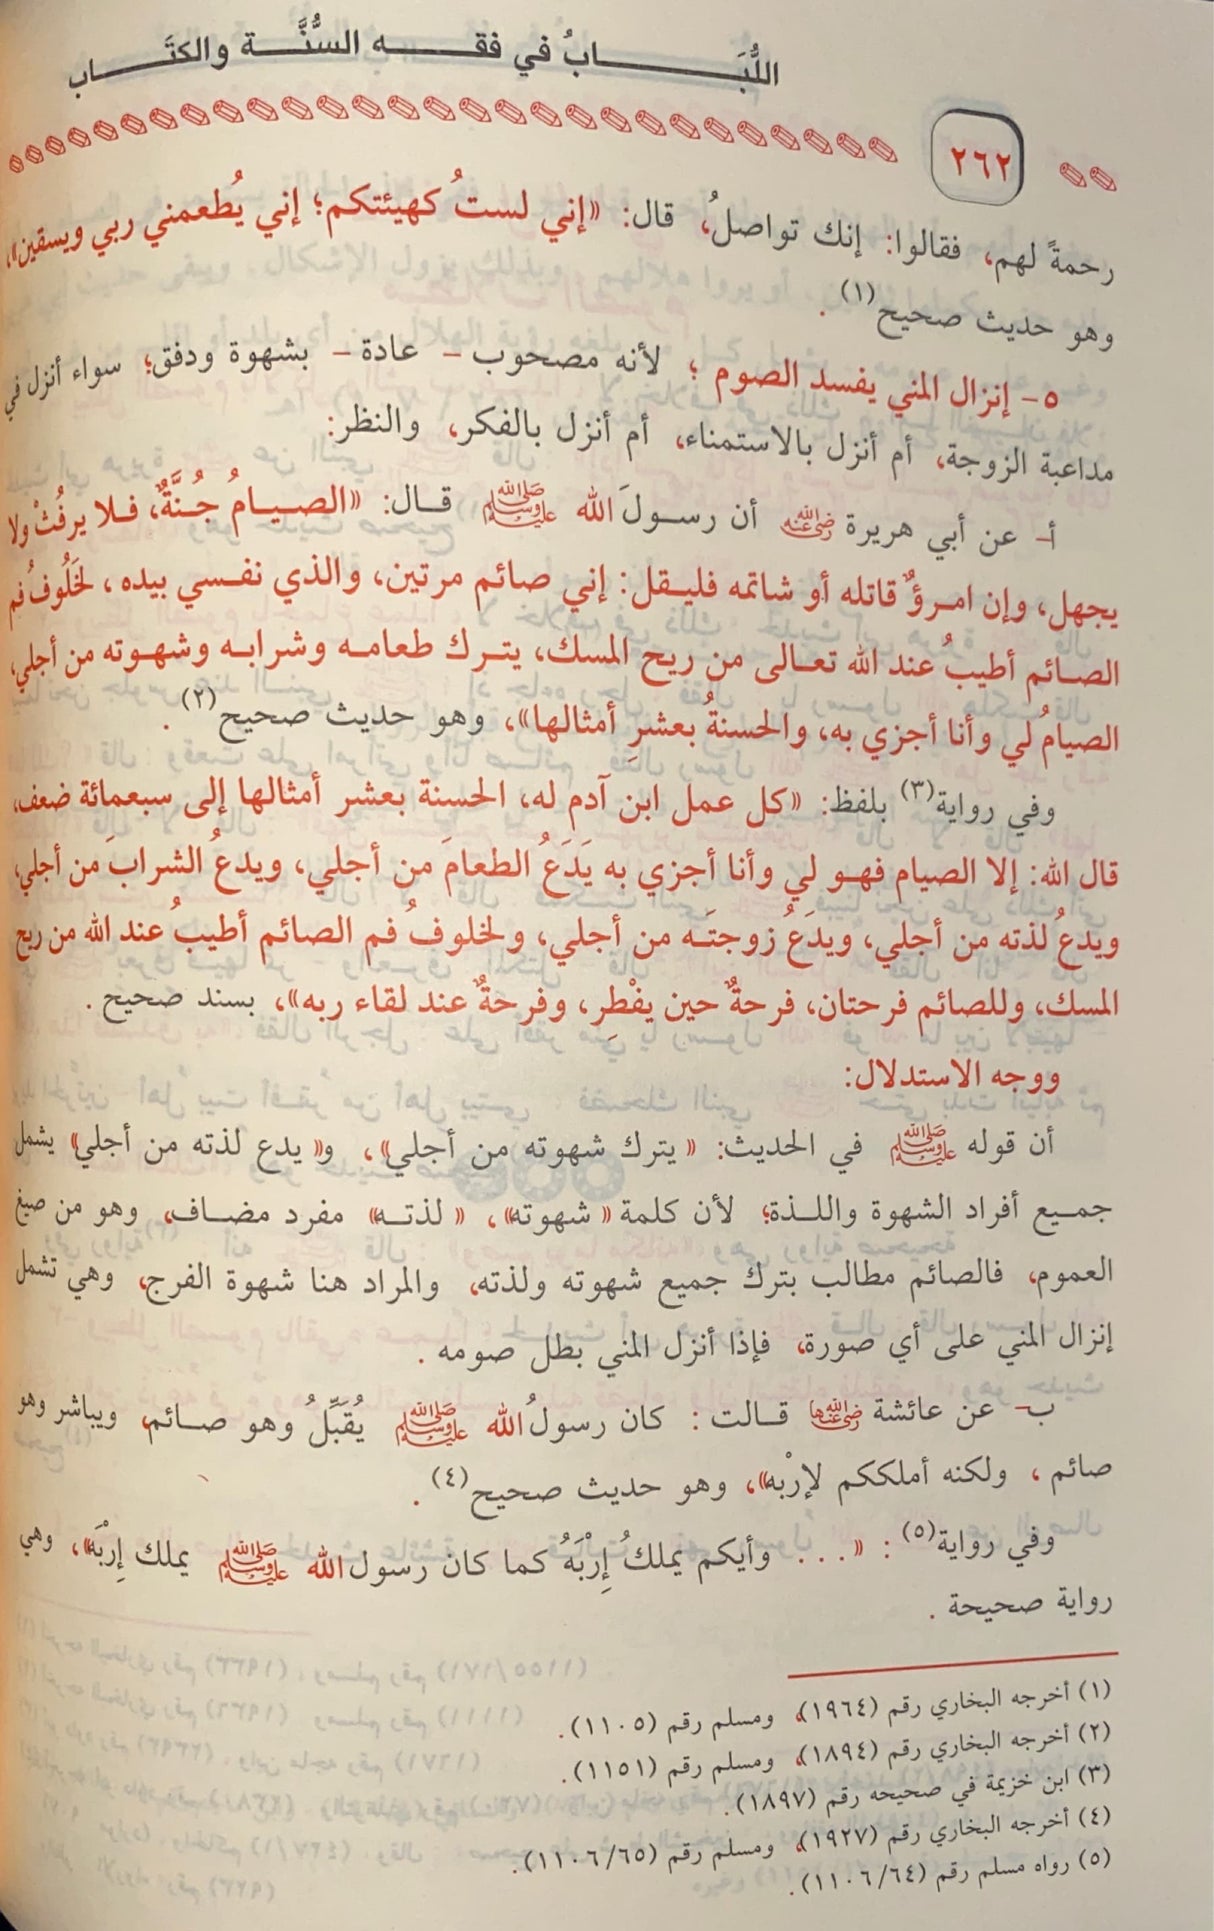 اللُّبَابُ في فقه السُّنَّة والكتَاب
٢٦٢
رحمةً لهم، فقالوا: إنك تواصلُ، قال: «إني لستُ كهيئتكم؛ إني يُطعمني ربي ويسقين»،
وهو حديث صحيح(١).
٥- إنزال المني يفسد الصوم؛ لأنه مصحوب - عادة - بشهوة ودفق؛ سواء أنزل في
مداعبة الزوجة، أم أنزل بالاستمناء، أم أنزل بالفكر، والنظر:
أ- عن أبي هريرة رضي الله عنه أن رسولَ الله ﷺ قال: «الصيامُ جُنَّةٌ، فلا يرفُثْ ولا
يجهل، وإن امرؤٌ قاتله أو شاتمه فليقل: إني صائم مرتين، والذي نفسي بيده، لخَلُوفُ فم
الصائم أطيبُ عند الله تعالى من ريح المسك، يترك طعامه وشرابه وشهوته من أجلي،
الصيامُ لي وأنا أجزي به، والحسنةُ بعشرِ أمثالها»، وهو حديث صحيح(٢).
وفي رواية(٣) بلفظ: «كل عمل ابن آدم له، الحسنة بعشر أمثالها إلى سبعمائة ضعف،
قال الله: إلا الصيام فهو لي وأنا أجزي به يَدَعُ الطعامَ من أجلي، ويدعُ الشرابَ من أجلي،
ويدعُ لذته من أجلي، ويدَعُ زوجتَه من أجلي، ولخلوفُ فم الصائم أطيبُ عند الله من ريح
المسك، وللصائم فرحتان، فرحةٌ حين يفْطِر، وفرحةٌ عند لقاء ربه»، بسند صحيح.
ووجه الاستدلال:
أن قوله ﷺ في الحديث: «يترك شهوته من أجلي»، و«يدع لذته من أجلي» يشمل
جميع أفراد الشهوة واللذة؛ لأن كلمة «شهوته»، «لذته» مفرد مضاف، وهو من صيغ
العموم، فالصائم مطالب بترك جميع شهوته ولذته، والمراد هنا شهوة الفرج، وهي تشمل
إنزال المني على أي صورة، فإذا أنزل المني بطل صومه.
ب- عن عائشة رضي الله عنها قالت: كان رسولُ الله ﷺ يُقَبِّلُ وهو صائم، ويباشر وهو
صائم، ولكنه أملككم لإرْبه»، وهو حديث صحيح(٤).
وفي رواية(٥): «... وأيكم يملكُ إِرْبَهُ كما كان رسول الله ﷺ يملك إِرْبَه»، وهي
رواية صحيحة.
(١) أخرجه البخاري رقم (١٩٦٤)، ومسلم رقم (١١٠٥).
(٢) أخرجه البخاري رقم (١٨٩٤)، ومسلم رقم (١١٥١).
(٣) ابن خزيمة في صحيحه رقم (١٨٩٧).
(٤) أخرجه البخاري رقم (١٩٢٧)، ومسلم رقم (١١٠٦/٦٥).
(٥) رواه مسلم رقم (١١٠٦/٦٤).